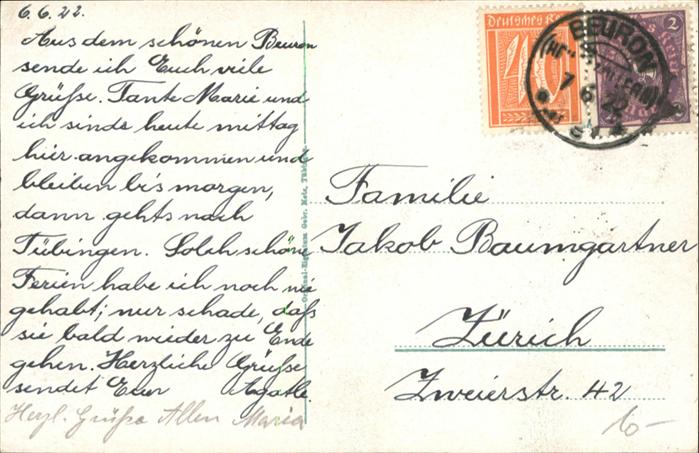 6.6.22.
Aus dem schönen Beuron
sende ich Euch viele
Grüsse. Tante Marie und
ich sinds heute mittag
hier angekommen und
bleiben bis morgen,
dann gehts nach
Tübingen. Solch schöne
Ferien habe ich noch nie
gehabt; nur schade, daß
sie bald wieder zu Ende
gehen. Herzliche Grüsse
sendet Euer Agatle.
Herzl. Grüße Allen Maria
Original-Eigentum Gebr. Metz, Tübingen
Deutsches Reich
2
BEURON
7 6 22
Familie
Jakob Baumgartner
Zürich
Zweierstr. 42
10-